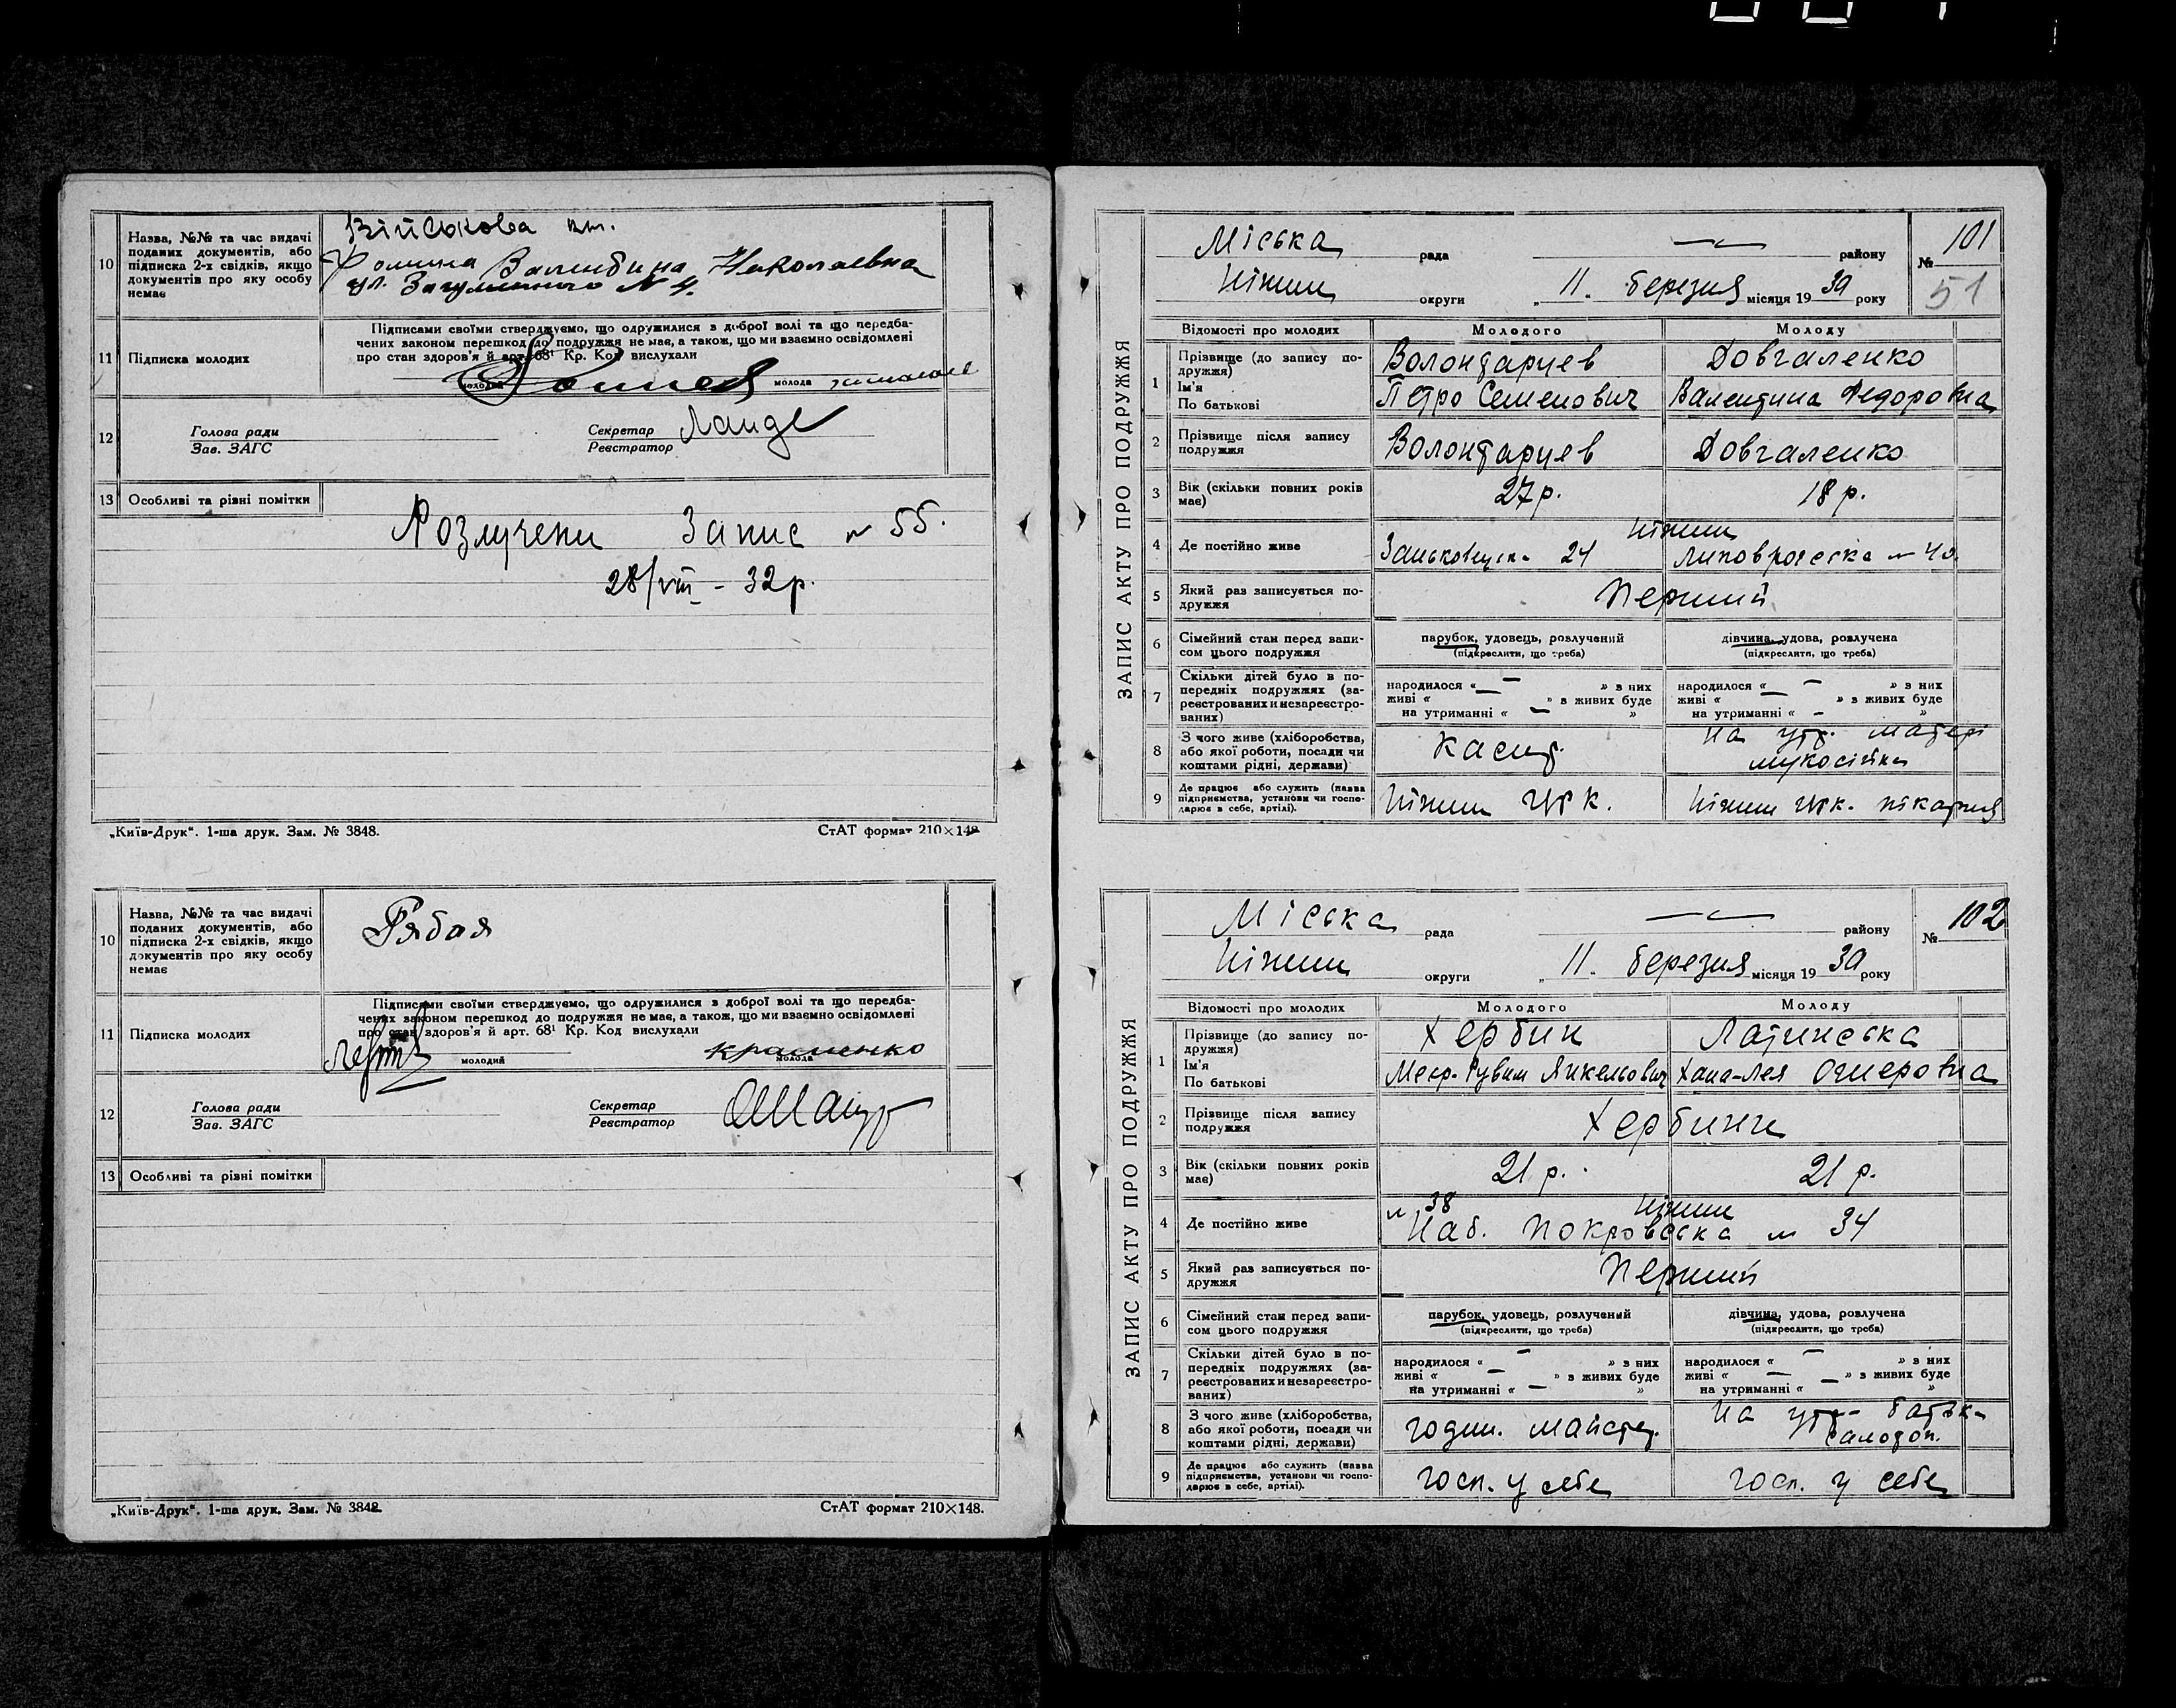 10
Назва, №№ та час видачі
поданих документів, або
підписка 2-х свідків, якщо
документів про яку особу
немає
Військова кн.
Фомина Валентина Николаевна
ул. Загуменного N 4.
11
Підписка молодих
Підписами своїми стверджуємо, що одружилися з доброї волі та що передба-
чених законом перешкод до подружжя не має, а також, що ми взаємно освідомлені
про стан здоров'я й арт. 68¹ Кр. Код вислухали
молодий
молода
12
Голова ради
Зав. ЗАГС
Секретар
Реєстратор
Ланде
13
Особливі та рівні помітки
Розлучени Запис N 55.
28/VIII - 32р.
„Київ-Друк“. 1-ша друк. Зам. № 3848.
СтАТ формат 210×148
10
Назва, №№ та час видачі
поданих документів, або
підписка 2-х свідків, якщо
документів про яку особу
немає
Рябая
11
Підписка молодих
Підписами своїми стверджуємо, що одружилися з доброї волі та що передба-
чених законом перешкод до подружжя не має, а також, що ми взаємно освідомлені
про стан здоров'я й арт. 68¹ Кр. Код вислухали
молодий
молода
12
Голова ради
Зав. ЗАГС
Секретар
Реєстратор
13
Особливі та рівні помітки
„Київ-Друк“. 1-ша друк. Зам. № 3848
СтАТ формат 210×148.
ЗАПИС АКТУ ПРО ПОДРУЖЖЯ
Міська рада району
№ 101
Ніжин округи „ 11. березня місяця 19 30 року
51
Відомості про молодих
Молодого
Молоду
1
Прізвище (до запису по-
дружжя)
Ім'я
По батькові
Волондарцев
Петро Семенович
Довгаленко
Валентина Федоровна
2
Прізвище після запису
подружжя
Волондарцев
Довгаленко
3
Вік (скільки повних років
має)
27 р.
18 р.
4
Де постійно живе
Ніжин
24
N 40.
5
Який раз записується по-
дружжя
Перший
6
Сімейний стан перед запи-
сом цього подружжя
парубок, удовець, розлучений
(підкреслити, що треба)
дівчина, удова, розлучена
(підкреслити, що треба)
7
Скільки дітей було в по-
передніх подружжях (за-
реєстрованих и незареєстро-
ваних)
народилося « — » з них
живі « — » з живих буде
на утриманні « — »
народилося « — » з них
живі « — » з живих буде
на утриманні « — »
8
З чого живе (хліборобства,
або якої роботи, посади чи
коштами рідні, держави)
касир.
на утр. матері
9
Де працює або служить (назва
підприємства, установи чи госпо-
дарює в себе, артілі).
Ніжин ЦРК.
Ніжин ЦРК. пікарня
ЗАПИС АКТУ ПРО ПОДРУЖЖЯ
Міська рада району
№ 102
Ніжин округи „ 11. березня місяця 19 30 року
Відомості про молодих
Молодого
Молоду
1
Прізвище (до запису по-
дружжя)
Ім'я
По батькові
Хербин
Меєр-Рувин Янкельович
Латинська
Хана-Лея Ошеровна
2
Прізвище після запису
подружжя
Хербини
3
Вік (скільки повних років
має)
21 р.
21 р.
4
Де постійно живе
N 38 Ніжин
Наб. Покровська N 34
5
Який раз записується по-
дружжя
Перший
6
Сімейний стан перед запи-
сом цього подружжя
парубок, удовець, розлучений
(підкреслити, що треба)
дівчина, удова, розлучена
(підкреслити, що треба)
7
Скільки дітей було в по-
передніх подружжях (за-
реєстрованих и незареєстро-
ваних)
народилося « — » з них
живі « — » з живих буде
на утриманні « — »
народилося « — » з них
живі « — » з живих буде
на утриманні « — »
8
З чого живе (хліборобства,
або якої роботи, посади чи
коштами рідні, держави)
годин. майстер.
На утр- батьк-
9
Де працює або служить (назва
підприємства, установи чи госпо-
дарює в себе, артілі).
госп. у себе
госп. у себе